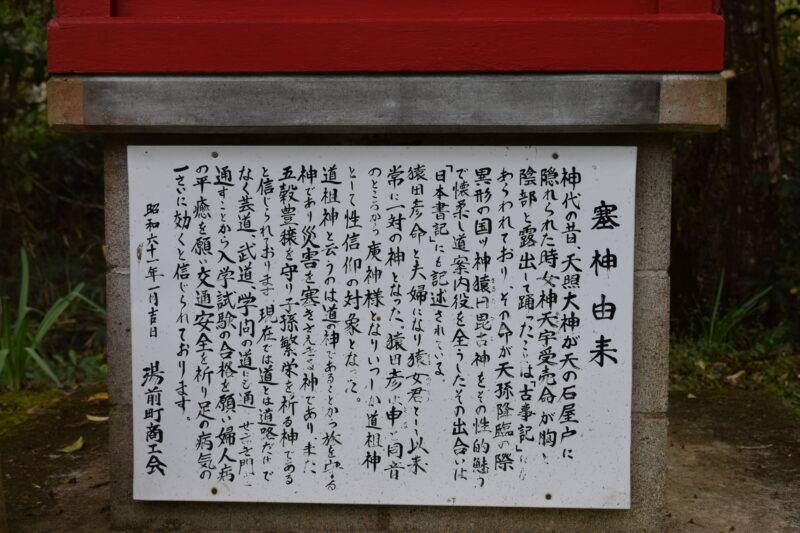 塞神由来
神代の昔、天照大神が天の石屋戸に
隠れられた時女神天宇受売命が胸と
陰部を露出して踊ったことは古事記に
あらわれており、その命が天孫降臨の際
異形の国ッ神猿田毘古神をその性的魅力
で懐柔し道案内役を全うしたその出合いは
「日本書記」にも記述されている。
猿田彦命と夫婦になり猿女君として以来
常に一対の神となった、猿田彦は申と同音
のところから庚神様となりいつしか道祖神
として性信仰の対象となった。
道祖神と云うのは道の神であるとかつ旅を守る
神であり災害を塞ぎさえぎる神であり、また
五穀豊穣を守り子孫繁栄を祈る神である
と信じられております、現在では道とは道路だけで
なく芸道、武道、学問の道にも通
通すことから入学試験の合格を願い婦人病
の平癒を願い交通安全を祈り足の病気の
一さいに効くと信じられております。
昭和六十一年一月吉日
湯前町商工会